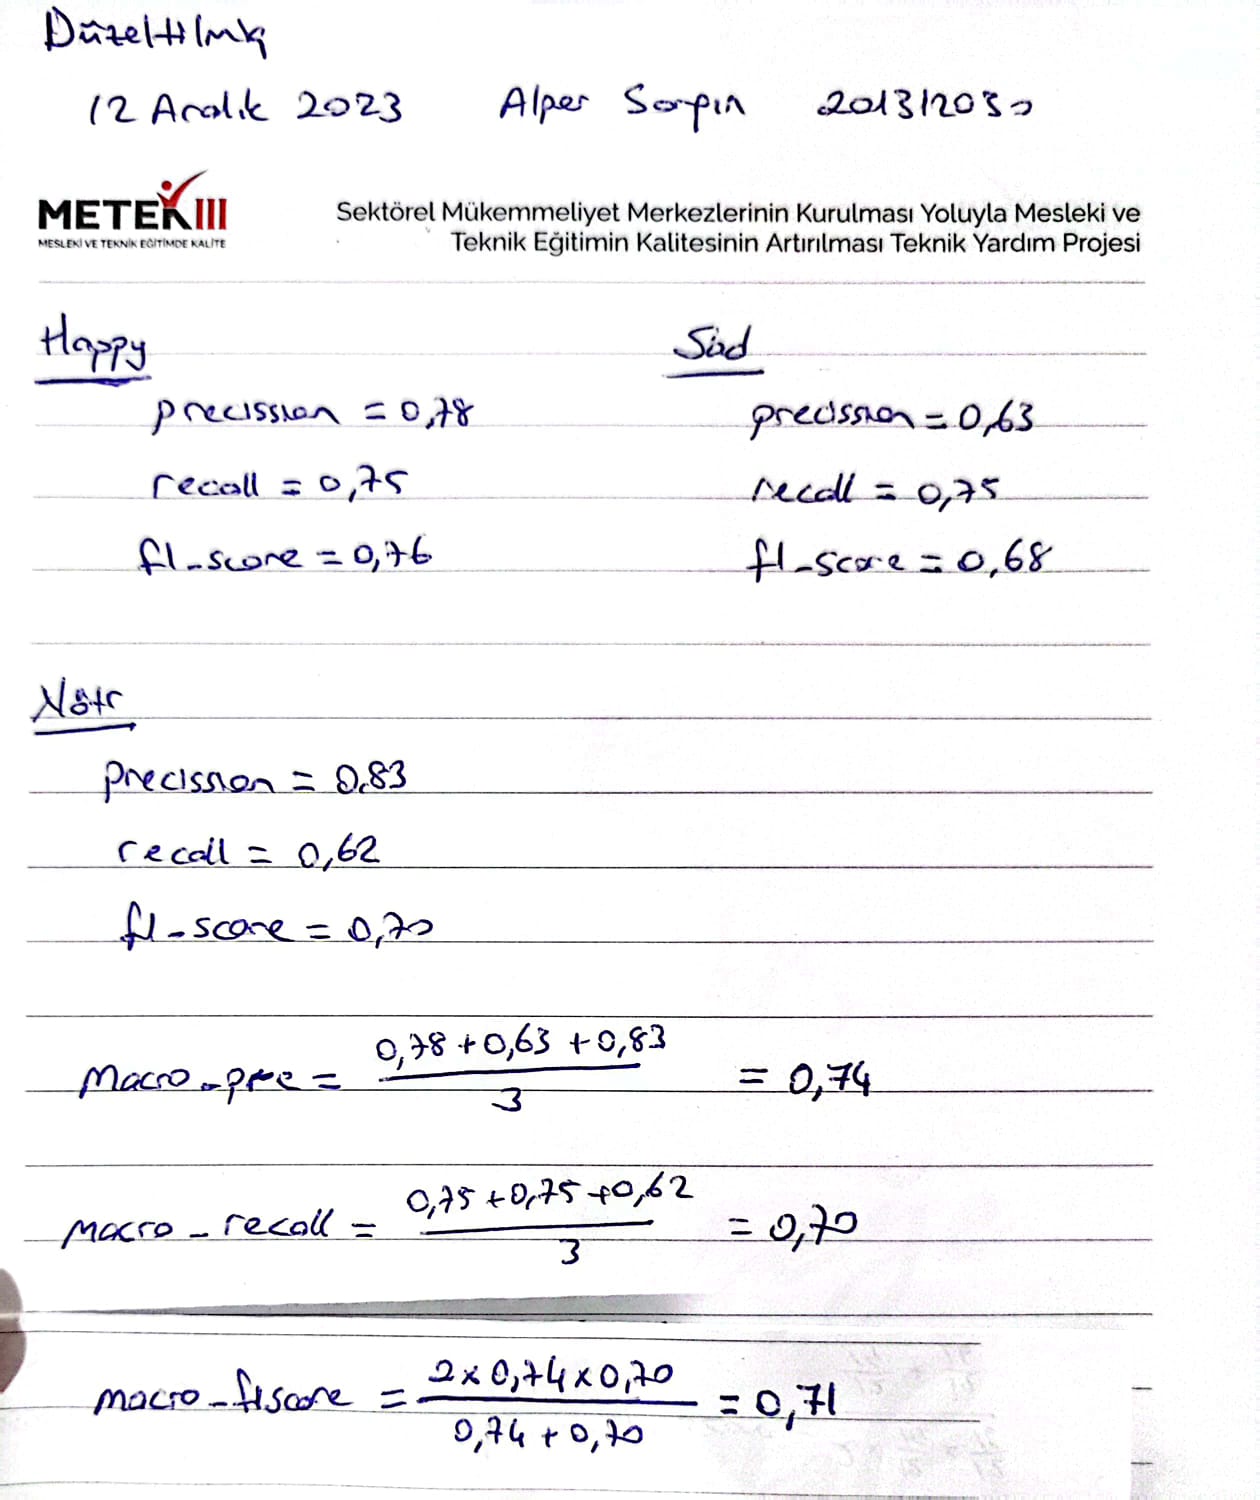 Düzeltilmiş
12 Aralık 2023 Alper Sarpın 201312030
METEK III
MESLEKİ VE TEKNİK EĞİTİMDE KALİTE
Sektörel Mükemmeliyet Merkezlerinin Kurulması Yoluyla Mesleki ve
Teknik Eğitimin Kalitesinin Artırılması Teknik Yardım Projesi
Happy Sad
precission = 0,78 precission = 0,63
recall = 0,75 recall = 0,75
f1_score = 0,76 f1_score = 0,68
Nötr
precission = 0,83
recall = 0,62
f1_score = 0,70
macro_pre = (0,78 + 0,63 + 0,83) / 3 = 0,74
macro_recall = (0,75 + 0,75 + 0,62) / 3 = 0,70
macro_f1score = (2 x 0,74 x 0,70) / (0,74 + 0,70) = 0,71